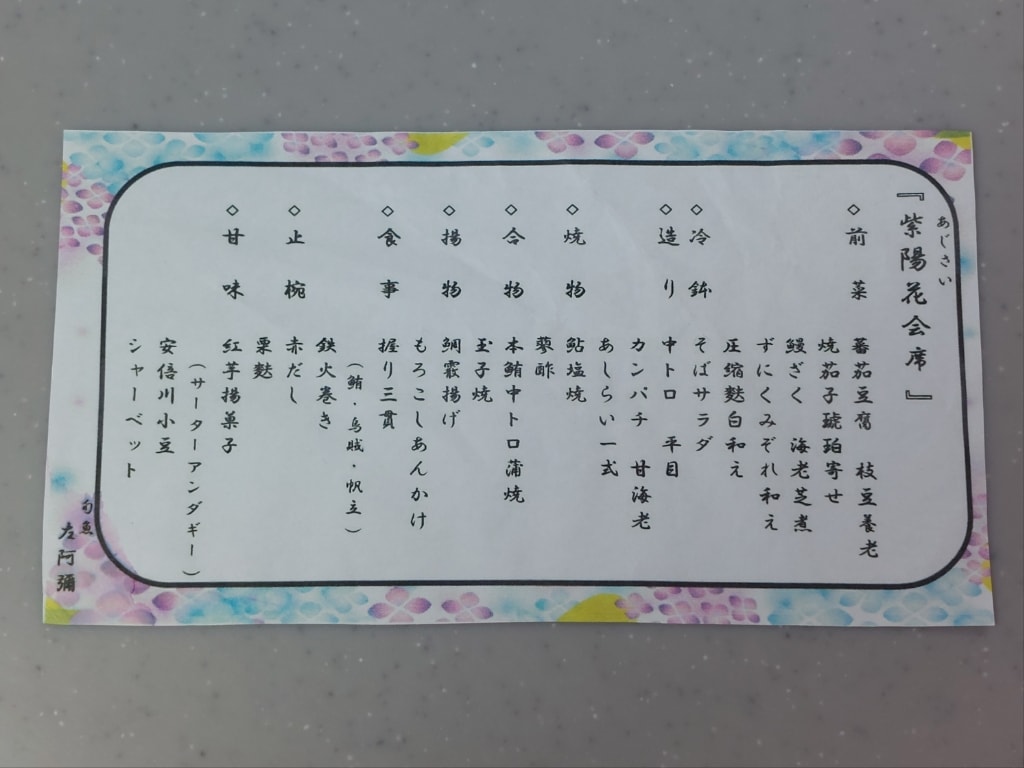 『紫陽花会席』
あじさい
◇前菜 蕃茄豆腐 枝豆養老
焼茄子琥珀寄せ
鰻ざく 海老芝煮
ずにくみぞれ和え
圧縮麩白和え
◇冷鉢 そばサラダ
◇造り 中トロ 平目
カンパチ 甘海老
あしらい一式
◇焼物 鮎塩焼
蓼酢
◇合物 本鮪中トロ蒲焼
玉子焼
◇揚物 鯛霰揚げ
もろこしあんかけ
◇食事 握り三貫
(鮪・烏賊・帆立)
鉄火巻き
◇止椀 赤だし
粟麩
◇甘味 紅芋揚菓子
(サーターアンダギー)
安倍川小豆
シャーベット
旬魚
左阿彌